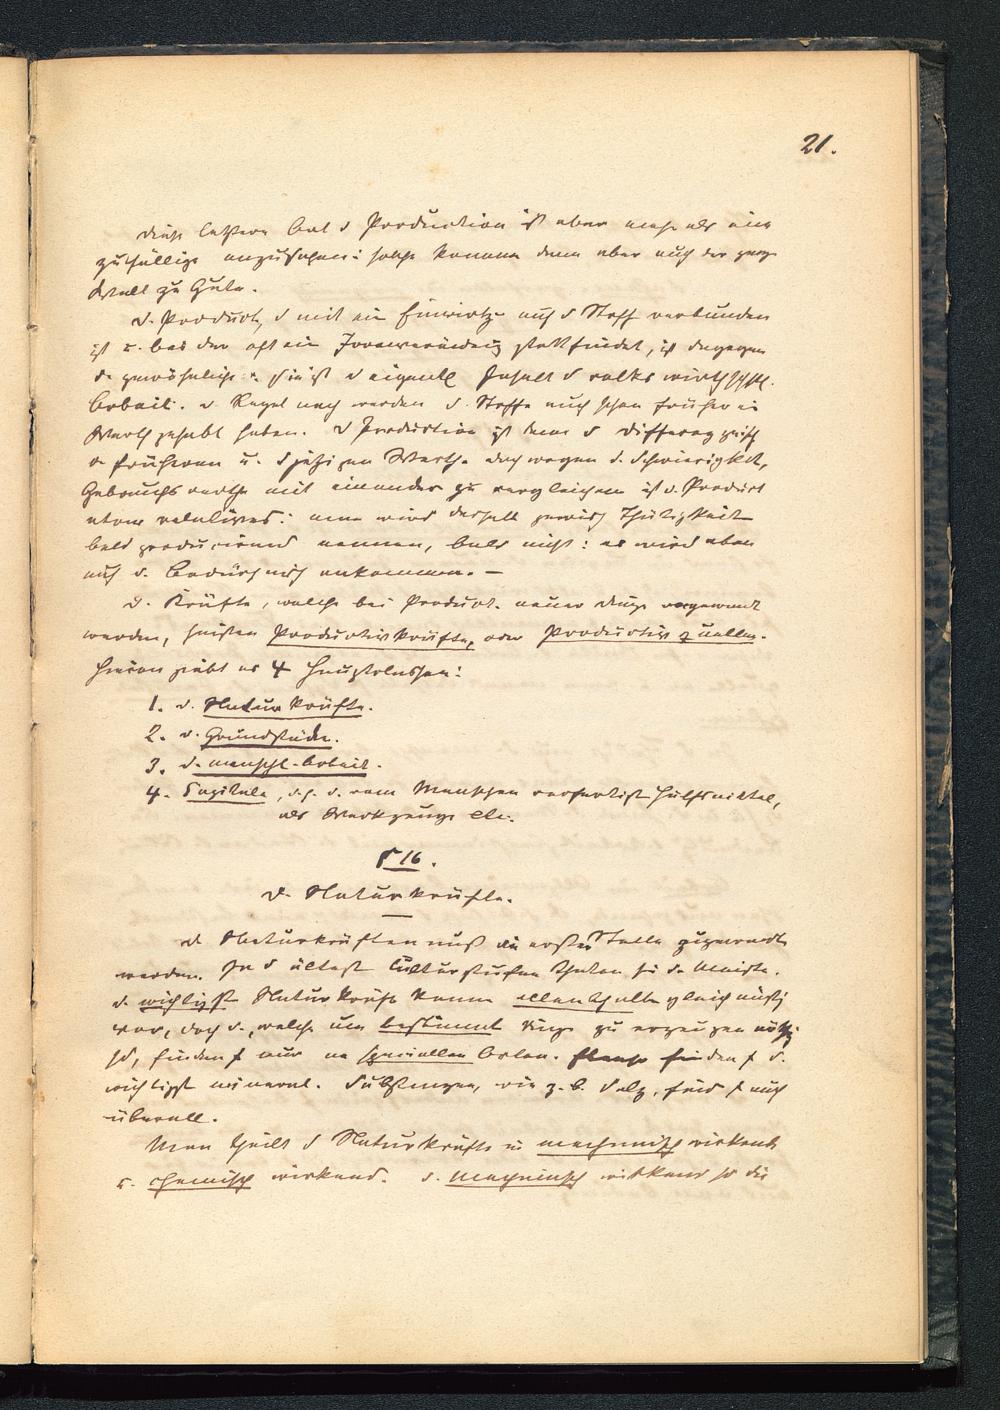 21.
Diese letztere Art d Production ist aber mehr als eine
zufällige anzusehen: solche kommen denn aber auch der ganzen
Welt zu Gute.
D. Product, d mit ein Einwirkg auf d Stoff verbunden
ist u. bei der oft ein Formveränderg stattfindet, ist dagegen
d. gewöhnliche u. sie ist d eigentl Inhalt d volkswirthschftl.
Arbeit. D. Regel nach werden d. Stoffe auch schon früher ein
Werth gehabt haben. D Production ist dann d Differenz zwisch
d. früheren u. d jetzigen Werth. doch wegen d. Schwierigkeit,
Gebrauchswerthe mit einander zu vergleichen ist d. Product
etwas relatives: man wird deshalb gewiss Thätigkeit
bald producirend nennen, bald nicht: es wird eben
auf d. Bedürfniss ankommen. —
D. Kräfte, welche bei Product. neuer Dinge angewandt
werden, heißen Productivkräfte, oder Productivquellen.
Hievon giebt es 4 Hauptclassen:
1. d. Naturkräfte.
2. d. Grundstücke.
3. d. menschl. Arbeit.
4. Capitale, d. h. d. vom Menschen verfertigt Hülfsmittel,
als Werkzeuge etc.
§ 16.
D. Naturkräfte.
D Naturkräften muß die erste Stelle zugewandt
werden. In d ältest Culturstufen thaten sie d. Meiste.
D. wichtigst Naturkräfte kommen allenthalb gleichmäßig
vor, doch d., welche um bestimmt Dinge zu erzeugen nöthig
sd, finden s nur an speciellen Orten. Ebenso finden s d.
wichtigst mineral. Substanzen, wie z. B. Salz, sind s auch
überall.
Man theilt d Naturkräfte in mechanisch wirkend
u. chemisch wirkend. D. mechanisch wirkend sd die